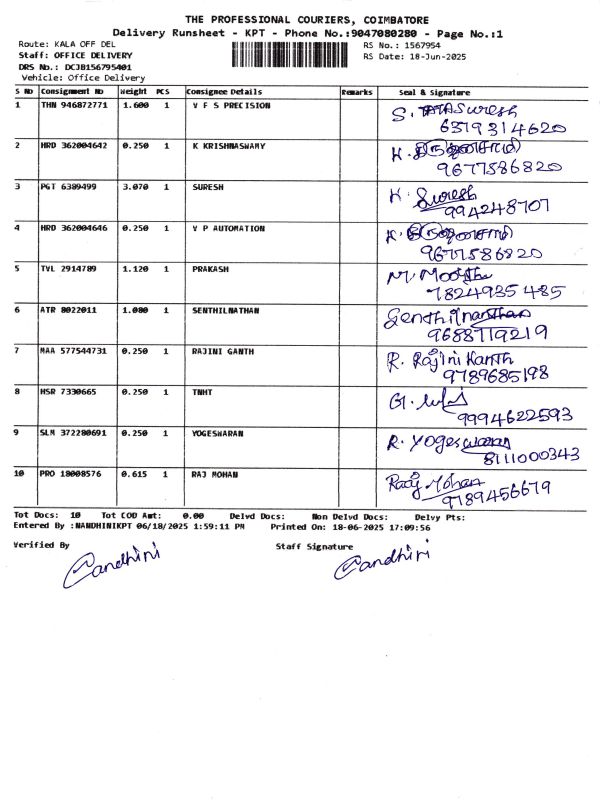 THE PROFESSIONAL COURIERS, COIMBATORE
Delivery Runsheet - KPT - Phone No.:9047080280 - Page No.:1
Route: KALA OFF DEL RS No.: 1567954
Staff: OFFICE DELIVERY RS Date: 18-Jun-2025
DRS No.: DCJB156795401
Vehicle: Office Delivery
S NO Consignment No Weight PCS Consignee Details Remarks Seal & Signature
1 THN 946872771 1.600 1 V F S PRECISION S. Suresh
6379314620
2 HRD 362004642 0.250 1 K KRISHNASWAMY K.
9677586820
3 PGT 6389499 3.070 1 SURESH K. Suresh
994248707
4 HRD 362004646 0.250 1 V P AUTOMATION K.
9677586820
5 TVL 2914789 1.120 1 PRAKASH M.
7824935485
6 ATR 8022011 1.080 1 SENTHILNATHAN Senthilnanthan
9688719219
7 MAA 577544731 0.250 1 RAJINI GANTH R. Rajini Kanth
9789685198
8 HSR 7330665 0.250 1 TNHT G.
9994622593
9 SLM 372280691 0.250 1 YOGESWARAN R. Yogeswaran
8111000343
10 PRO 18008576 0.615 1 RAJ MOHAN Raaj Mohan
9789456679
Tot Docs: 10 Tot COD Amt: 0.00 Delvd Docs: Non Delvd Docs: Delvy Pts:
Entered By :NANDHINIKPT 06/18/2025 1:59:11 PM Printed On: 18-06-2025 17:09:56
Verified By Staff Signature